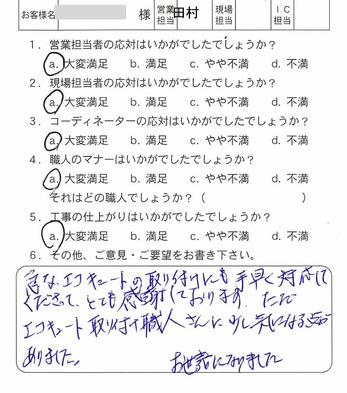 お客様名 様 営業担当 田村 現場担当 IC担当
1．営業担当者の応対はいかがでしたでしょうか？
a. 大変満足 b. 満足 c. やや不満 d. 不満
2．現場担当者の応対はいかがでしたでしょうか？
a. 大変満足 b. 満足 c. やや不満 d. 不満
3．コーディネーターの応対はいかがでしたでしょうか？
a. 大変満足 b. 満足 c. やや不満 d. 不満
4．職人のマナーはいかがでしたでしょうか？
a. 大変満足 b. 満足 c. やや不満 d. 不満
それはどの職人でしょうか？（ ）
5．工事の仕上がりはいかがでしたでしょうか？
a. 大変満足 b. 満足 c. やや不満 d. 不満
6．その他、ご意見・ご要望をお書き下さい。
急なエコキュートの取り付けにも手早く対応して
くださって、とても感謝しております。ただ
エコキュート取り付け職人さんに少し気になる点が
ありました。 お世話になりました